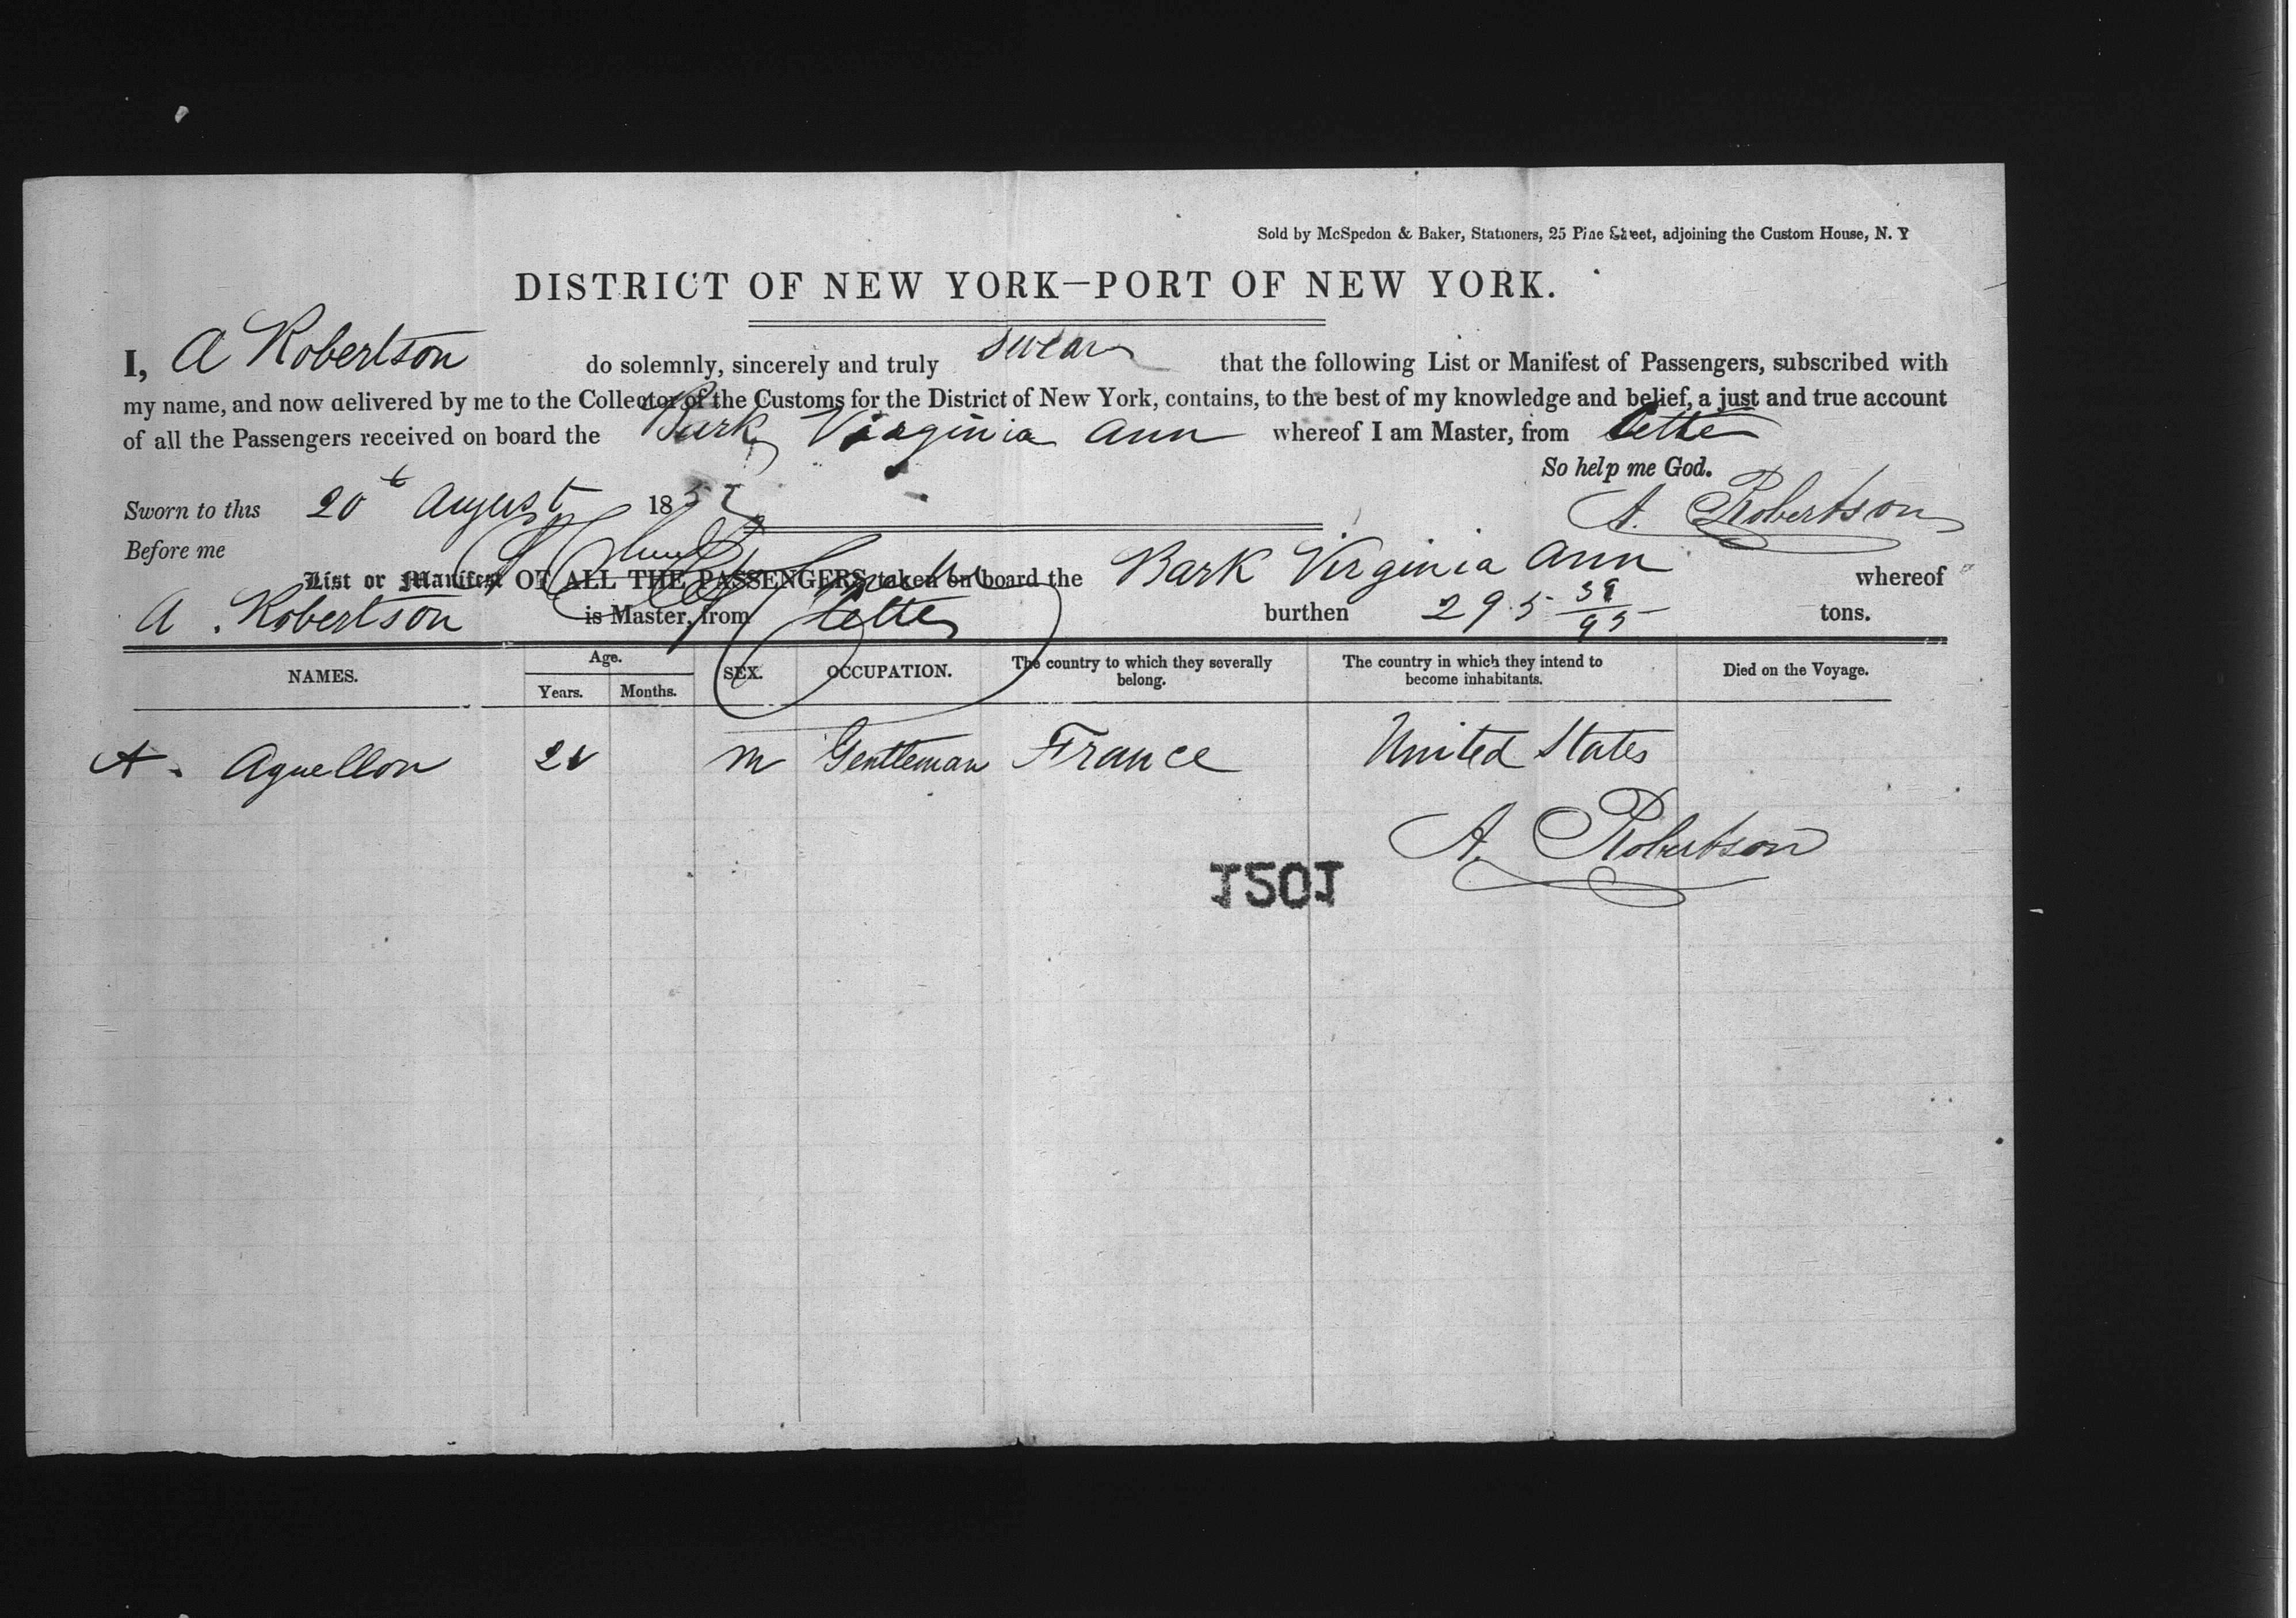 Sold by McSpedon & Baker, Stationers, 25 Pine Street, adjoining the Custom House, N. Y
DISTRICT OF NEW YORK—PORT OF NEW YORK.
I, A Robertson do solemnly, sincerely and truly swear that the following List or Manifest of Passengers, subscribed with
my name, and now delivered by me to the Collector of the Customs for the District of New York, contains, to the best of my knowledge and belief, a just and true account
of all the Passengers received on board the Bark Virginia Ann whereof I am Master, from Cette
So help me God.
Sworn to this 20t August 185
A. Robertson
Before me
List or Manifest OF ALL THE PASSENGERS taken on board the Bark Virginia Ann whereof
A. Robertson is Master, from Cette burthen 295 39/95 tons.
NAMES. Age. Years. Months. SEX. OCCUPATION. The country to which they severally belong. The country in which they intend to become inhabitants. Died on the Voyage.
A. Aguellon m Gentleman France United States
A. Robertson